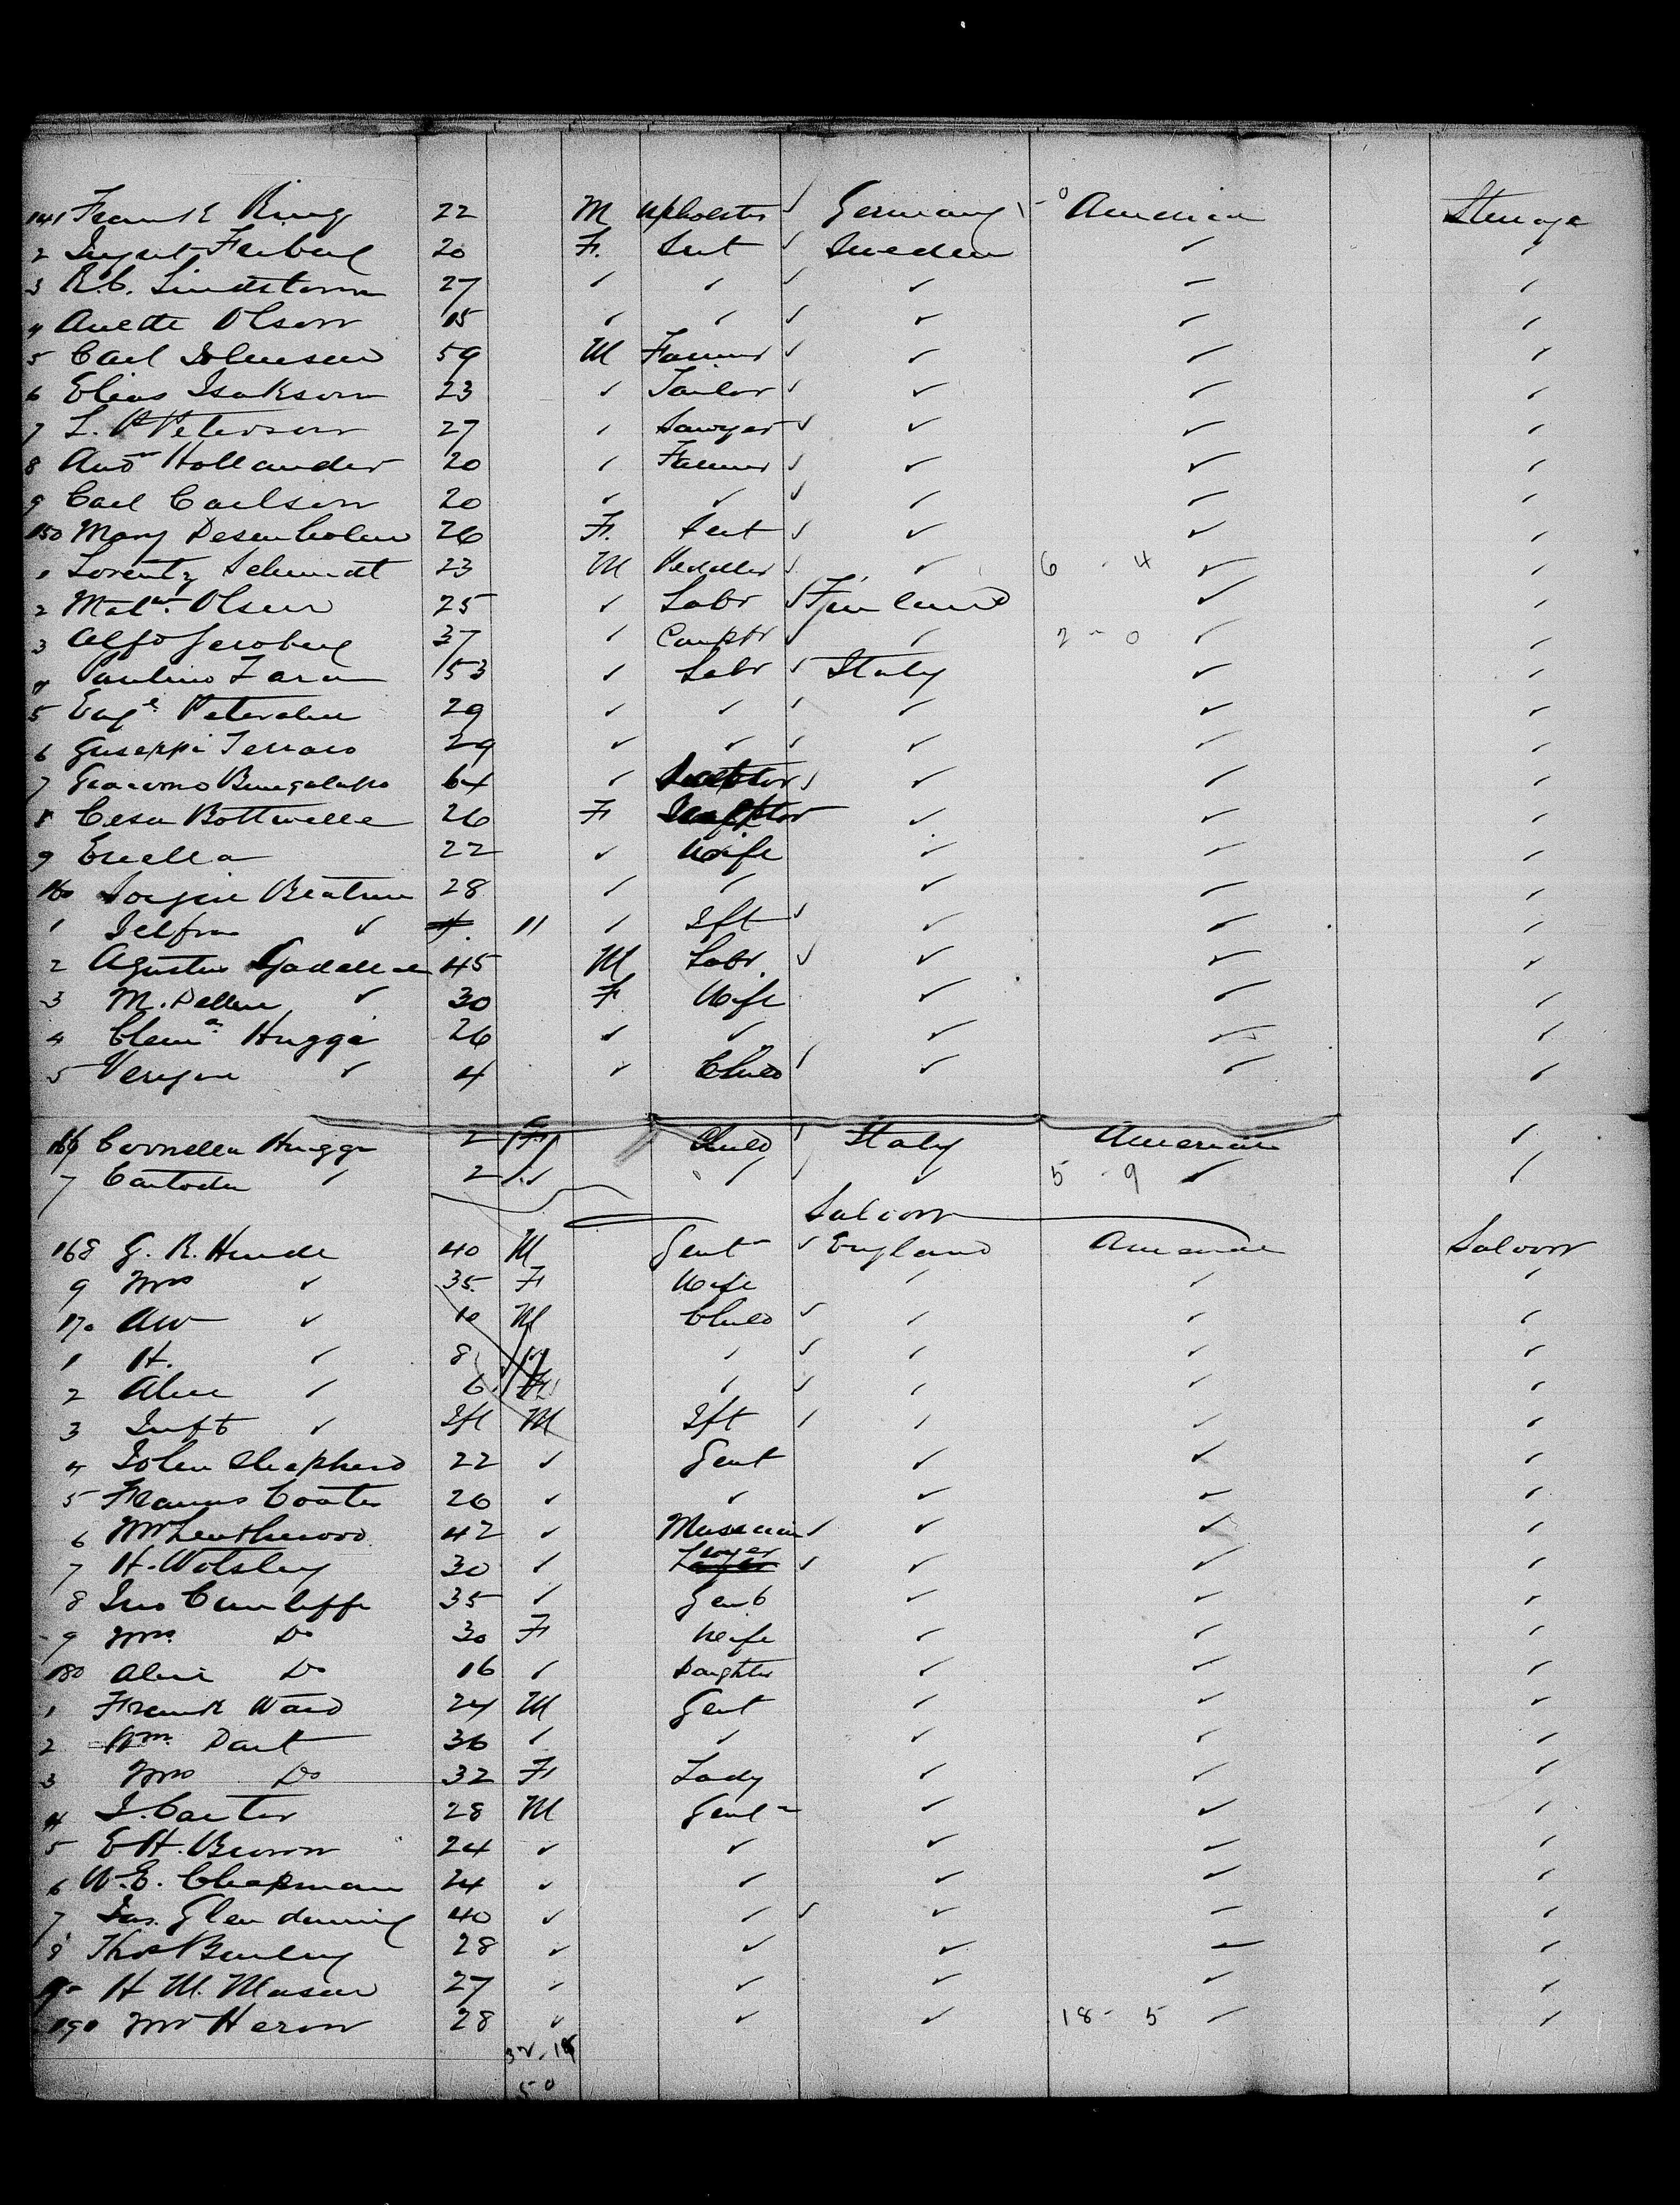 141 Frank Ring 22 M Upholster ✓ Germany 1-0 America Steerage
2 20 F. Sert ✓ Sweden ✓ ✓
3 R.C. Lindstorm 27 ✓ ✓ ✓ ✓ ✓ ✓
4 Anette Olson 15 ✓ ✓ ✓ ✓ ✓ ✓
5 Carl Johnson 59 M Farmer ✓ ✓ ✓ ✓
6 Elias Isakson 23 ✓ Tailor ✓ ✓ ✓ ✓
7 L. P Peterson 27 ✓ Sawyer ✓ ✓ ✓ ✓
8 And Hollander 20 ✓ Farmer ✓ ✓ ✓ ✓
9 Carl Carlson 20 ✓ ✓ ✓ ✓ ✓ ✓
150 Mary 26 F. Sert ✓ ✓ ✓ ✓
1 Lorentz Schmidt 23 M Peddler ✓ ✓ 6 - 4 ✓ ✓
2 Olsen 25 ✓ Labr ✓ Finland ✓ ✓
3 Alfd 37 ✓ Carptr ✓ ✓ 2 - 0 ✓ ✓
4 Paulino Zara 53 ✓ Labr ✓ Italy ✓ ✓
5 Euge 29 ✓ ✓ ✓ ✓ ✓ ✓
6 Guseppi Terraro 29 ✓ ✓ ✓ ✓ ✓ ✓
7 Giacomo 64 ✓ Sculptor ✓ ✓ ✓ ✓
8 Cesa 26 F Sculptor ✓ ✓ ✓
9 22 ✓ Wife ✓ ✓ ✓
160 28 ✓ ✓ ✓ ✓ ✓
1 ✓ 11 ✓ Ift ✓ ✓ ✓ ✓
2 45 M Labr ✓ ✓ ✓ ✓
3 M. ✓ 30 F Wife ✓ ✓ ✓
4 Hugga 26 ✓ ✓ ✓ ✓ ✓
5 ✓ 4 ✓ Child ✓ ✓ ✓ ✓
166 Cornelia Hugga 2 F Child ✓ Italy America ✓
7 ✓ 2 ✓ ✓ ✓ ✓ 5 - 9 ✓ ✓
Saloon
168 G. R. Hinde 40 M Gent ✓ England America Saloon
9 Mrs ✓ 35 F Wife ✓ ✓ ✓
170 AW ✓ 10 M Child ✓ ✓ ✓ ✓
1 H. ✓ 8 ✓ ✓ ✓ ✓ ✓
2 Alice ✓ 6 F ✓ ✓ ✓ ✓ ✓
3 Inft ✓ Ift M Ift ✓ ✓ ✓ ✓
4 John Shepherd 22 ✓ Gent ✓ ✓ ✓
5 Francis Coates 26 ✓ ✓ ✓ ✓ ✓
6 Mr 42 ✓ Musician ✓ ✓ ✓ ✓
7 H. Wolsley 30 ✓ ✓ ✓ ✓ ✓
8 Jno Cunliffe 35 ✓ Gent ✓ ✓ ✓
9 Mrs. Do 30 F Wife ✓ ✓ ✓
180 Alice Do 16 ✓ Daughter ✓ ✓ ✓
1 Frank Ward 24 M Gent ✓ ✓ ✓
2 Wm Dart 36 ✓ ✓ ✓ ✓ ✓
3 Mrs Do 32 F Lady ✓ ✓ ✓
4 J. Carter 28 M Gent ✓ ✓ ✓
5 E H. Brown 24 ✓ ✓ ✓ ✓ ✓
6 W. E. Chapman 24 ✓ ✓ ✓ ✓ ✓
7 Jas. Glendening 40 ✓ ✓ ✓ ✓ ✓ ✓
8 Thos 28 ✓ ✓ ✓ ✓ ✓
9 H M. Mason 27 ✓ ✓ ✓ ✓ ✓
190 Mr Heron 28 ✓ ✓ ✓ 18 - 5 ✓ ✓
32.18
50